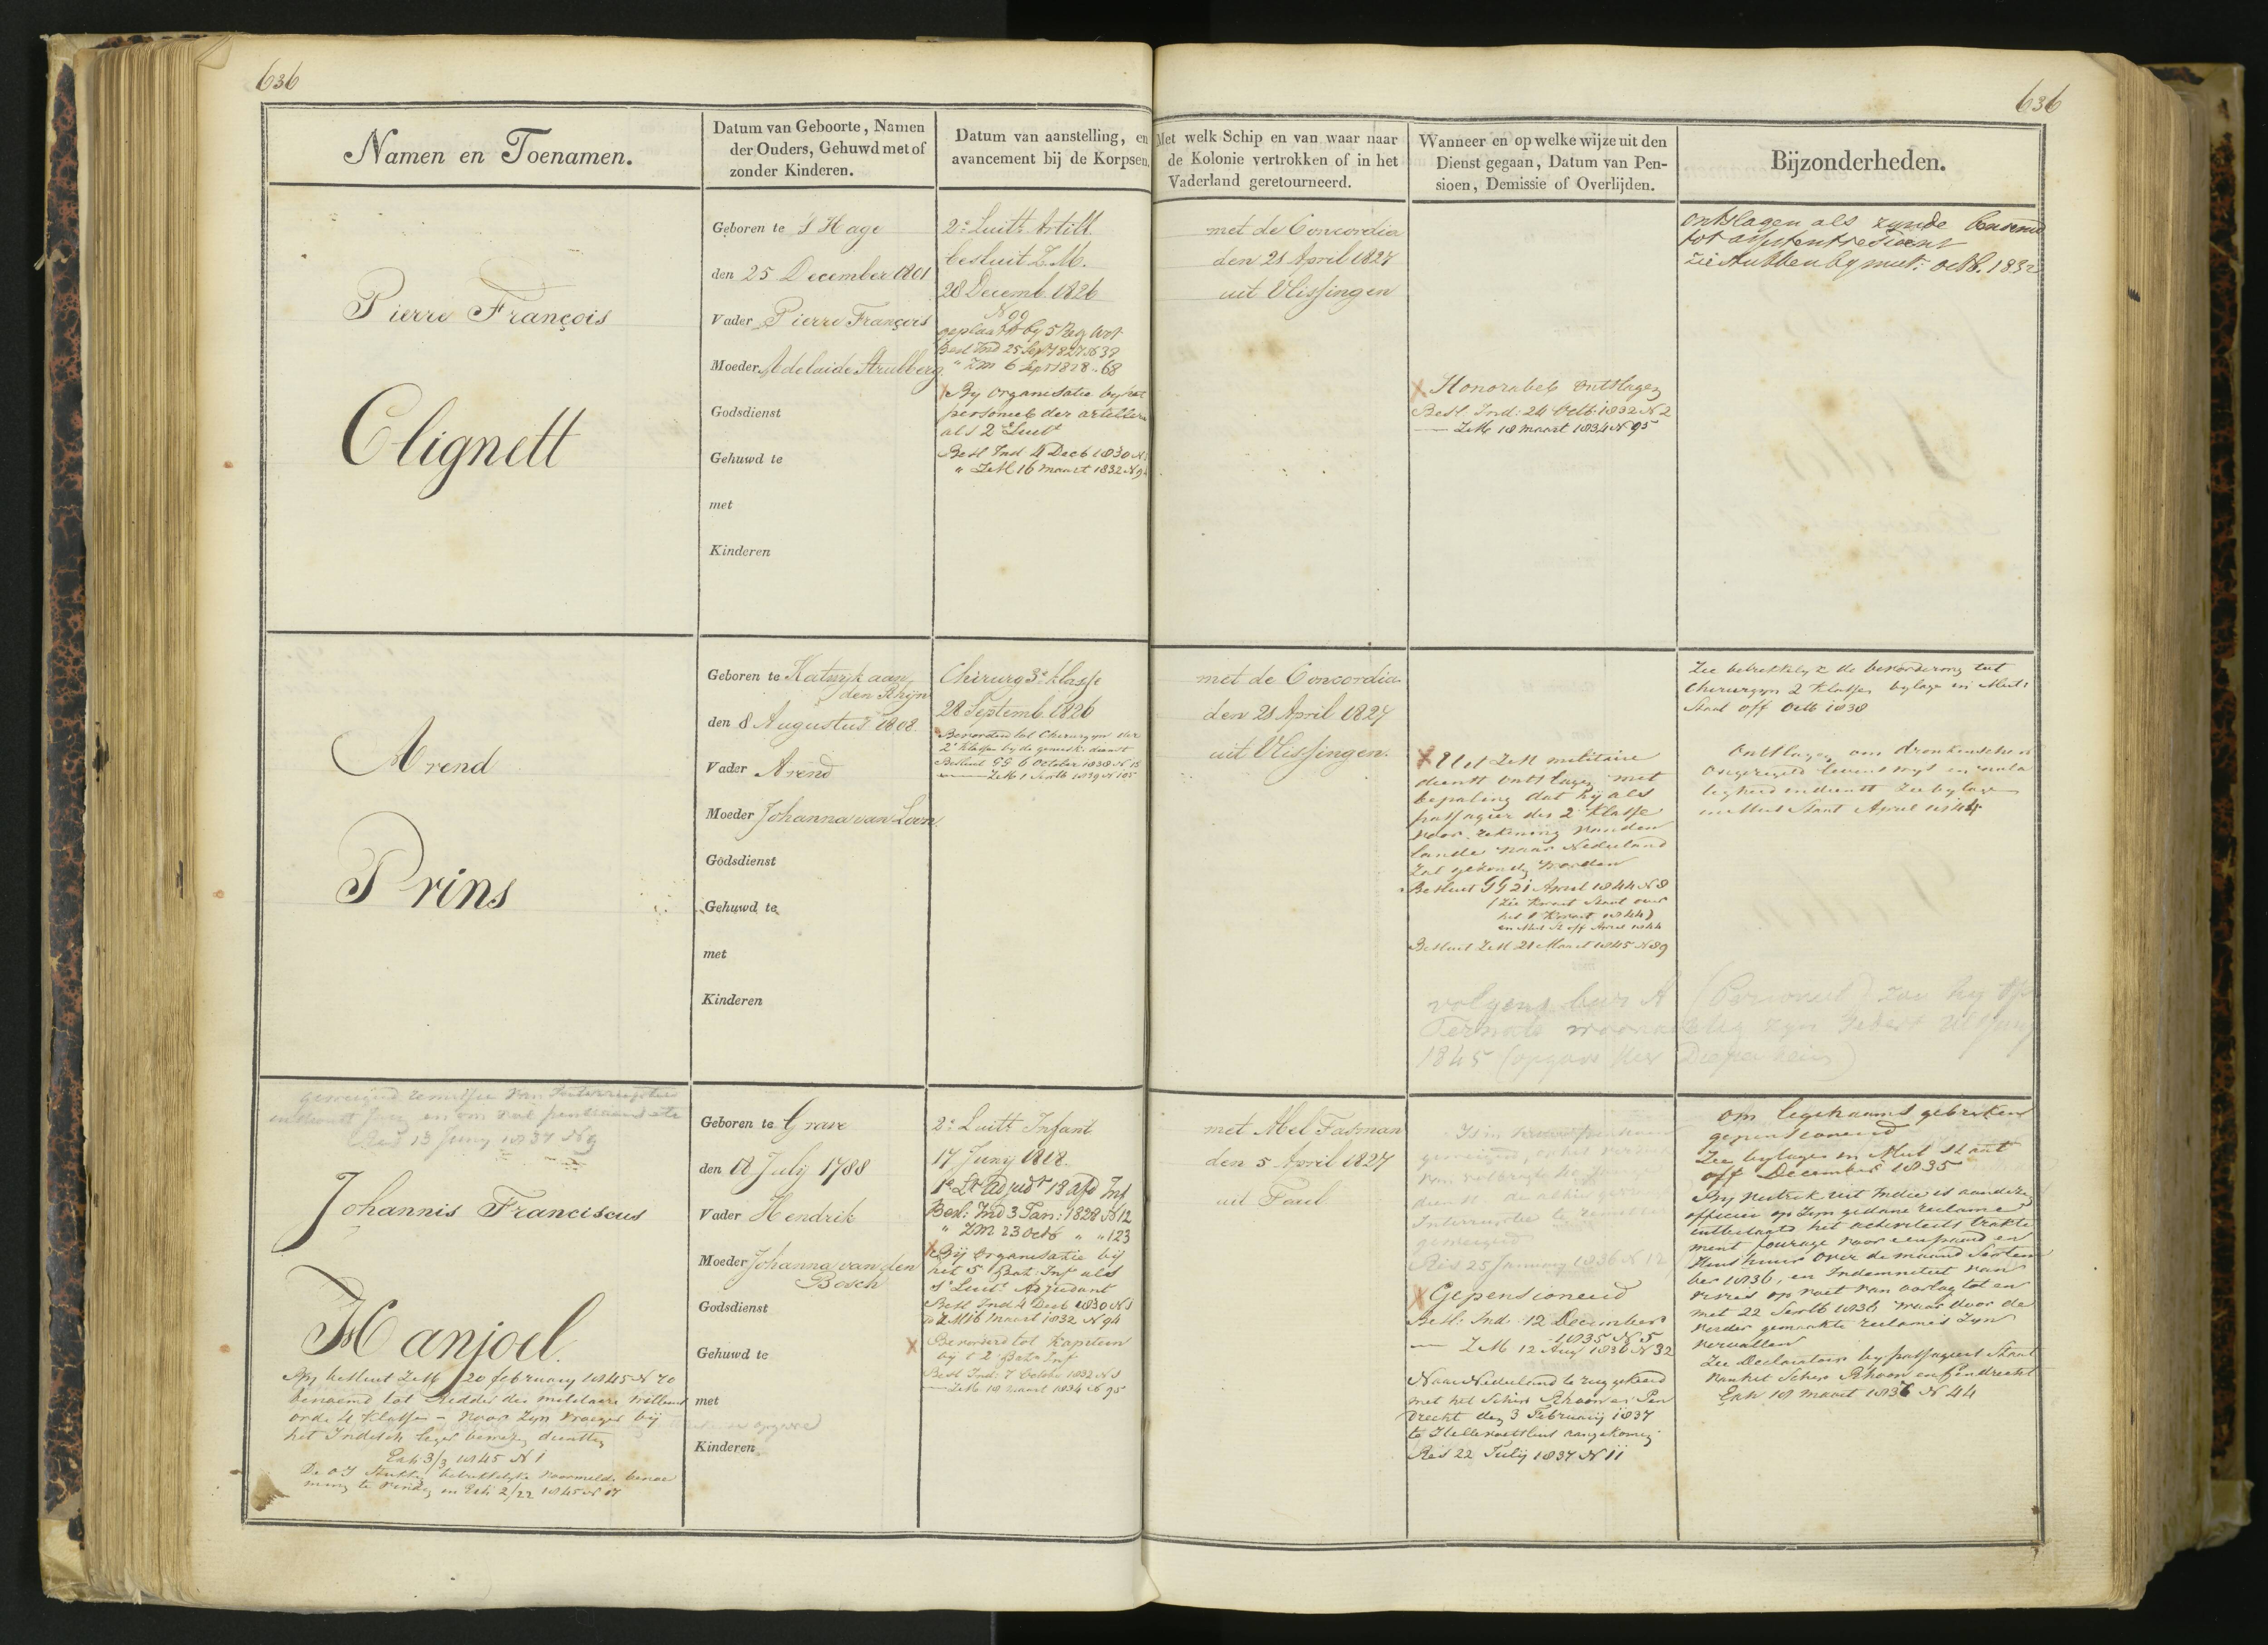 636
636
Namen en Toenamen.
Datum van Geboorte, Namen
der Ouders, Gehuwd met of
zonder Kinderen.
Datum van aanstelling, en
avancement bij de Korpsen.
Met welk Schip en van waar naar
de Kolonie vertrokken of in het
Vaderland geretourneerd.
Wanneer en op welke wijze uit den
Dienst gegaan, Datum van Pen-
sioen, Demissie of Overlijden.
Bijzonderheden.
Pierre François
Clignett
Geboren te 's Hage
den 25 December 1801
Vader Pierre François
Moeder Adelaide Strulberg
Godsdienst
Gehuwd te
met
Kinderen
2e Luitt Artill.
besluit Z.M.
28 Decemb. 1826
N 99
geplaatst by 5 Reg Art
Besl Ind 25 Sept 1827 N 37
" ZM 6 Sept 1828 " 68
By organisatie by het
personeel der artillerie
als 2e Luitt
Besl Ind 4 Decb 1830 N
" ZM 16 maart 1832 N 94
met de Concordia
den 21 April 1827
uit Vlissingen
Honorabel ontslagen
Besl. Ind: 24 Octb: 1832 N 2
— ZM 18 maart 1834 N 95
ontslagen als zynde benoemd
tot assistent resident
zie stukken by mut: octb. 1832
Arend
Prins
Geboren te Katwijk aan
den Rhijn
den 8 Augustus 1808.
Vader Arend
Moeder Johanna van Loon
Godsdienst
Gehuwd te
met
Kinderen
Chirurg 3e klasse
28 Septemb. 1826
Bevorderd tot Chirurgyn der
2e klasse by de geneesk: dienst
Besluit GG 6 October 1838 N 15
— ZM 1 Septb 1839 N 105
met de Concordia
den 21 April 1827
uit Vlissingen.
Uit ZM militaire
dienst ontslagen met
bepaling dat hij als
passagier der 2e klasse
voor rekening van den
lande naar Nederland
zal gezonden worden
Besluit GG 21 April 1844 N 8
(Zie Kwart Staat over
het 1 Kwart 1844)
en Mut St off April 1844
Besluit ZM 21 Maart 1845 N 89
Zie betrekkelyk de bevordering tot
Chirurgyn 2 Klasse bylage in Mut:
Staat off Octb 1838
Ontslagen om dronkenschap
ongeregeld levenswyz en nala
tigheid in dienst Zie bylage
in Mut Staat April 1844
volgens bur A (Personeel) zou hy op
Ternate
1845 (opgave
Res 13 Juny 1837 N 9
Johannis Franciscus
Hanjoel.
By besluit ZM 20 february 1845 N 70
benoemd tot Ridder der militaire Willems
orde 4 Klasse - voor zyn vroeger bij
het Indisch leger bewezen diensten
Exh 3/3 1845 N 1
De O I stukken betrekkelyke voormelde benoe
ming te vinden in Exh 2/22 1845 N 17
Geboren te Grave
den 18 July 1788
Vader Hendrik
Moeder Johanna van den
Bosch
Godsdienst
Gehuwd te
met
Kinderen
2e Luitt Infant
17 Juny 1818.
1e Lt Adjudt 18 Afd Inf
Besl: Ind 3 Jan: 1828 N 12
" ZM 23 Octb " " 123
Bij organisatie bij
het 5 Bat: Inf als
1e Luitt Adjudant
Besl Ind 4 Decb 1830 N 1
ZM 16 maart 1832 N 94
Bevorderd tot Kapitein
bij t 2 Bat. Inf
Besl Ind: 7 Octobr 1832 N 1
— ZM 18 maart 1834 N 95
met Abel Tasman
den 5 April 1827
uit Texel
geweigerd
Res 25 January 1836 N 12
Gepensioneerd
Besl: Ind. 12 December
1835 N 5
— ZM 12 Aug 1836 N 32
Naar Nederland te rug gekeerd
met het Schip Rhoon en Pen
drecht den 3 February 1837
te Hellevoetsluis aangekomen
Res 22 July 1837 N 11
om ligchaams gebreken
gepensioneerd
Zie bylagen in Mut Staat
off December 1835
By vertrek uit Indie is aan dezen
officier op zyn gedane reclame
uitbetaald het activiteits trakte
ment fourage voor een paard en
Huishuur over de maand Septem
ber 1836, en Indemniteit van
vivres op voet van oorlog tot en
met 22 Septb 1836 waar door de
verder gemaakte reclames zyn
vervallen
Zie Declaratoir by passagiers Staat
van het Schip Rhoon en Pendrecht
Exh 18 maart 1836 N 44